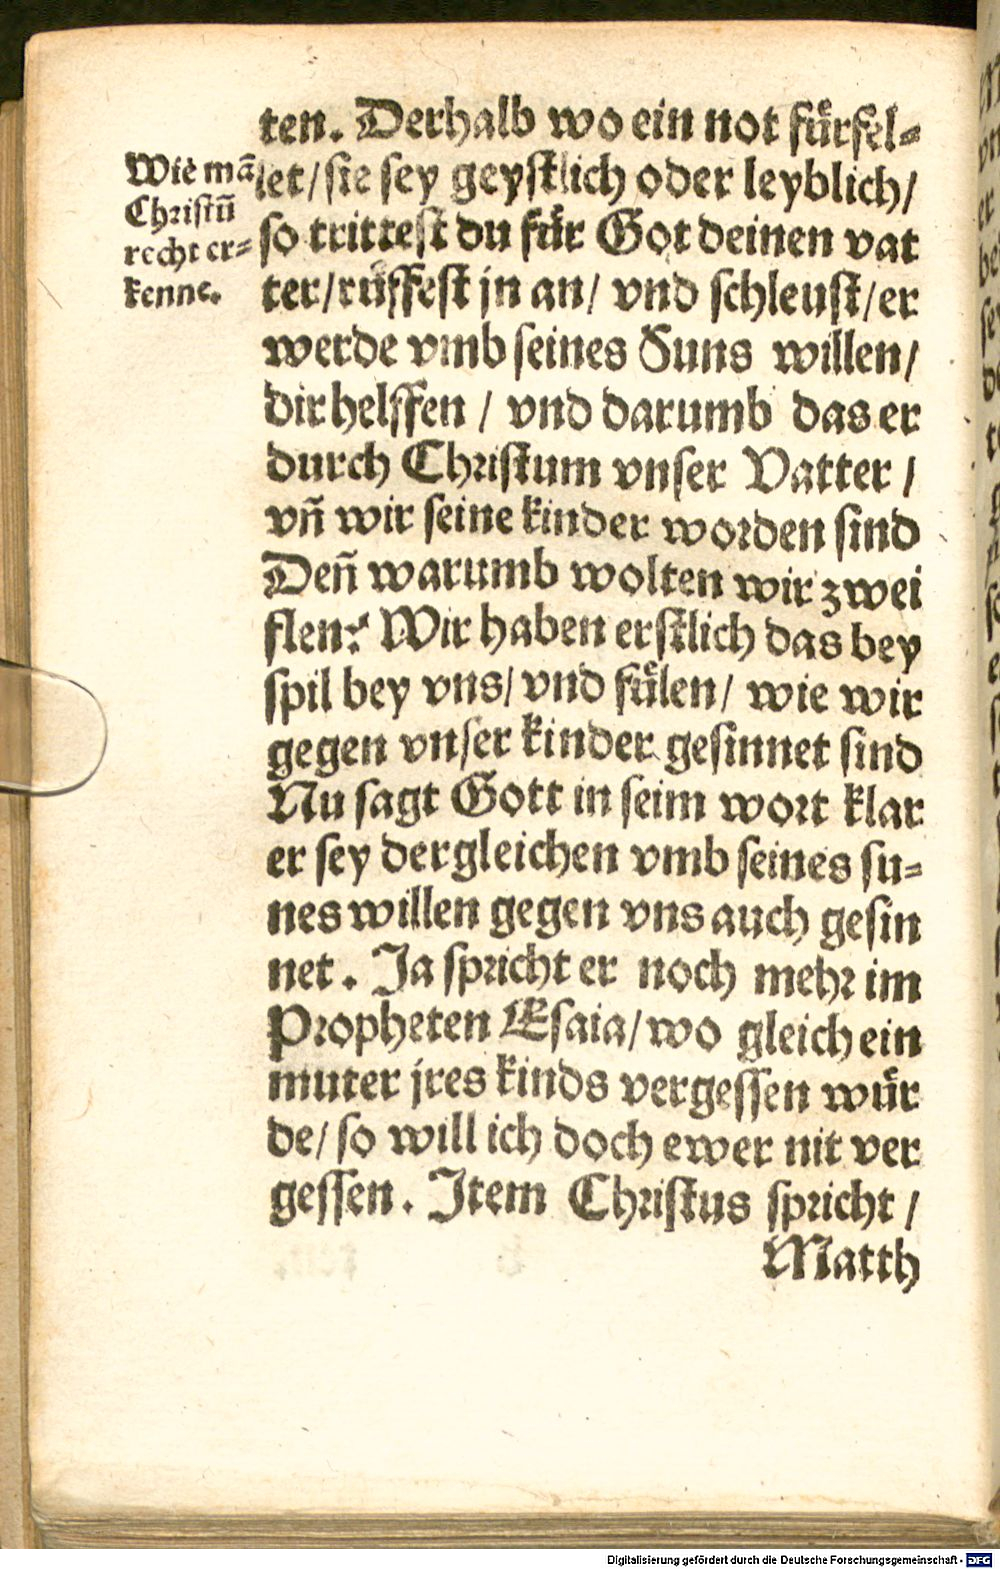 Wie mā
Christū
recht er⸗
kenne.
ten. Derhalb wo ein not fuͤrfel⸗
let/ sie sey geystlich oder leyblich/
so trittest du fuͤr Got deinen vat
ter/ ruͤffest jn an/ vnd schleust/ er
werde vmb seines Suns willen/
dir helffen / vnd darumb das er
durch Christum vnser Vatter /
vn̄ wir seine kinder worden sind
Den̄ warumb wolten wir zwei
flen? Wir haben erstlich das bey
spil bey vns/ vnd fuͤlen/ wie wir
gegen vnser kinder gesinnet sind
Nu sagt Gott in seim wort klar
er sey dergleichen vmb seines su⸗
nes willen gegen vns auch gesin
net. Ja spricht er noch mehr im
Propheten Esaia/ wo gleich ein
muter jres kinds vergessen wuͤr
de/ so will ich doch ewer nit ver
gessen. Item Christus spricht /
Matth
Digitalisierung gefördert durch die Deutsche Forschungsgemeinschaft - DFG